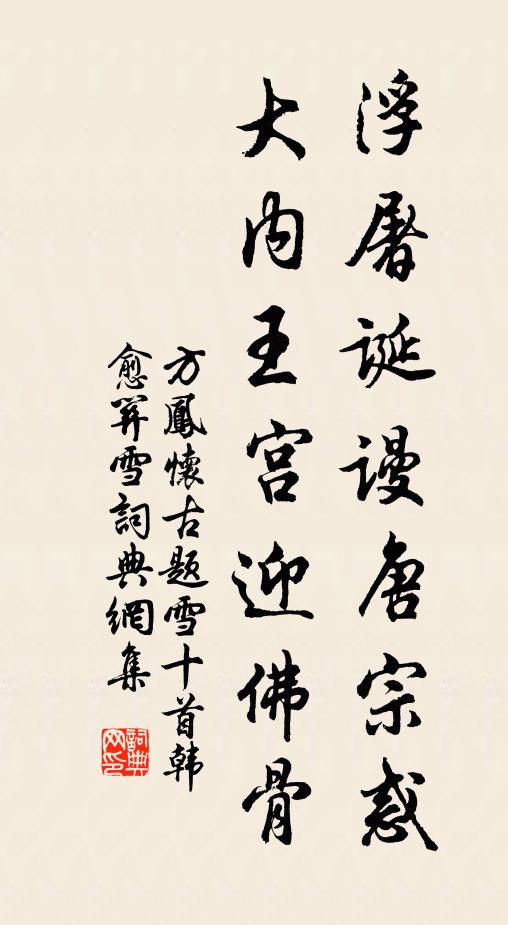 浮屠诞谩唐宗惑
大内王宫迎佛骨
方鳳懷古题雪十首韩
愈羿雪詞典網集
詞典
网印